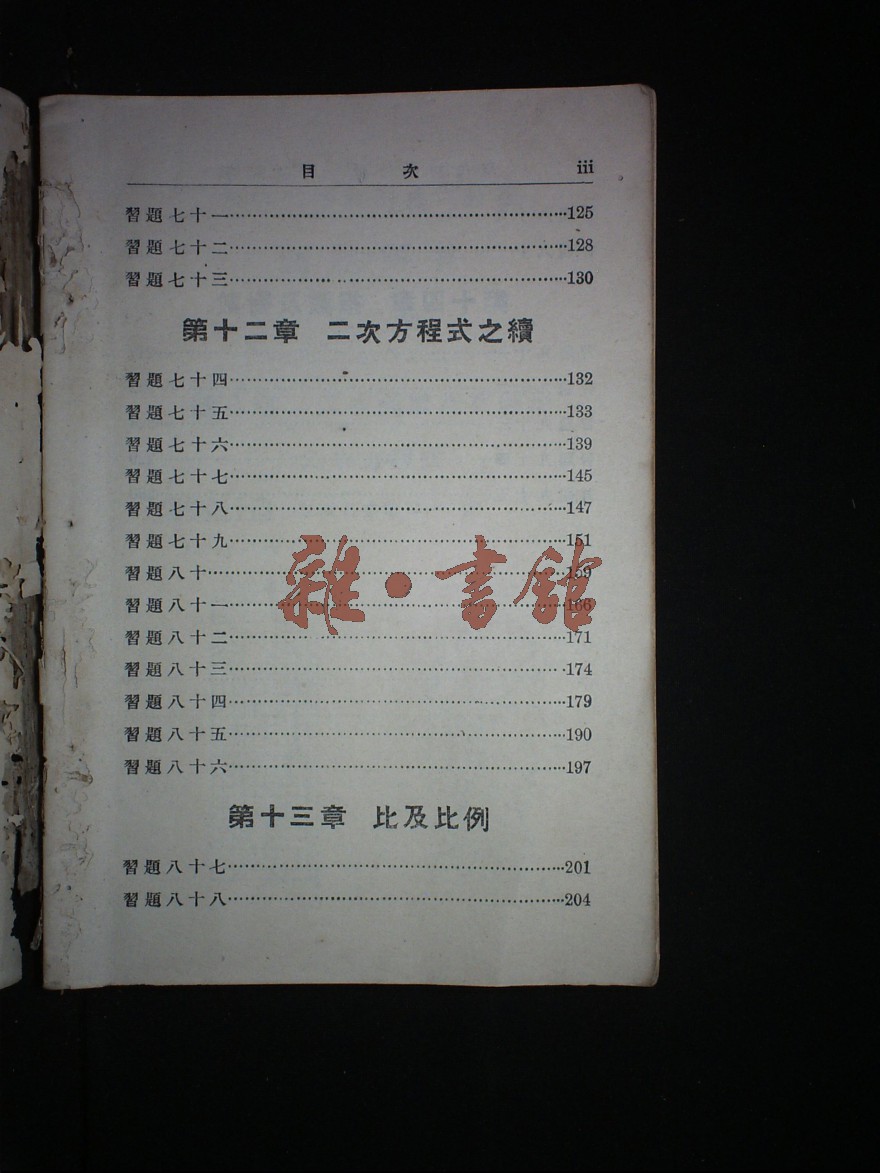 目 次 iii
習題七十一……125
習題七十二……128
習題七十三……130
第十二章 二次方程式之續
習題七十四……132
習題七十五……133
習題七十六……139
習題七十七……145
習題七十八……147
習題七十九……151
習題八十……159
習題八十一……166
習題八十二……171
習題八十三……174
習題八十四……179
習題八十五……190
習題八十六……197
第十三章 比及比例
習題八十七……201
習題八十八……204
雜·書館